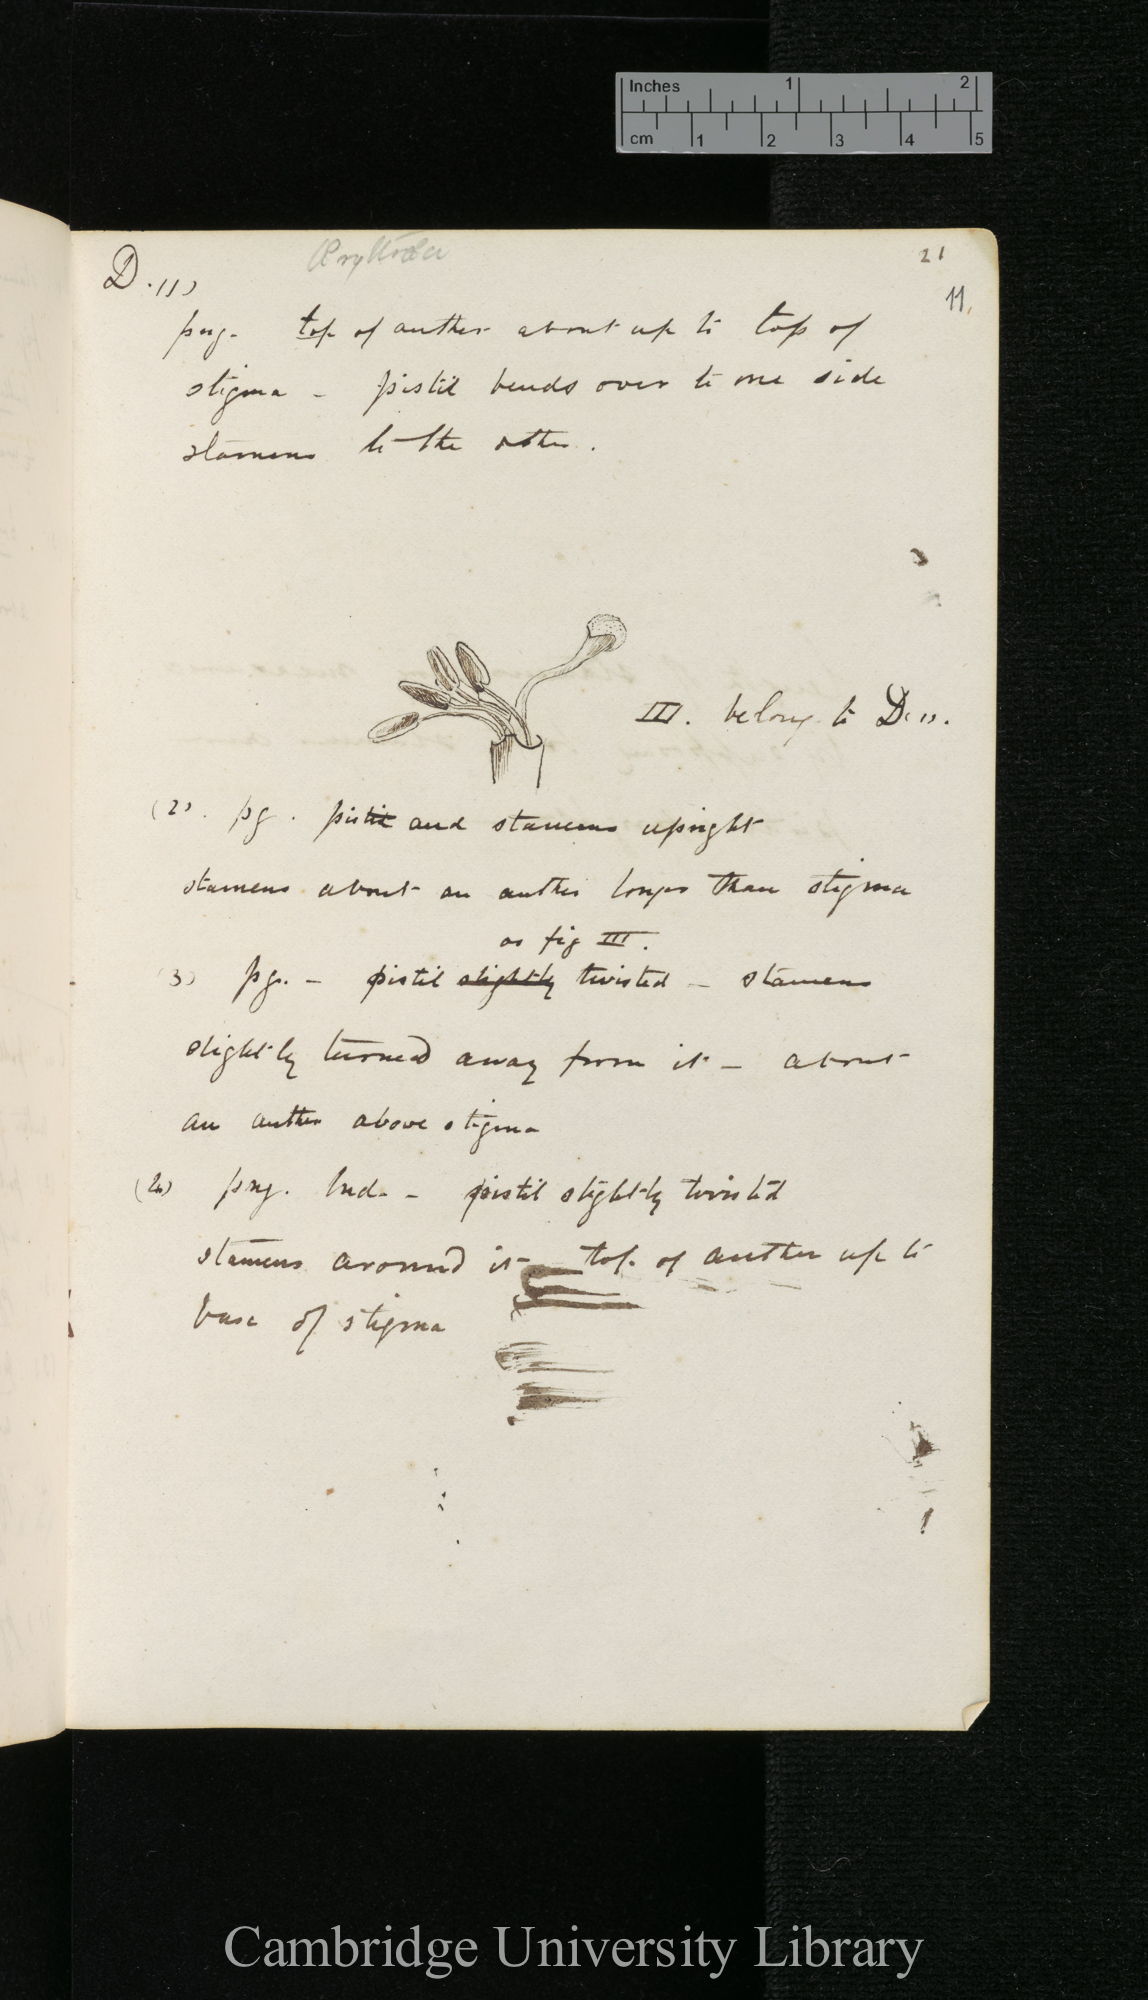 Inches 1 2
cm 1 2 3 4 5
21
D. (1)
11.
png. top of anther about up to top of
stigma - pistil bends over to one side
stamens to the other.
III. belong to D. (1).
(2). pg. pistil and stamens upright
stamens about an anther longer than stigma
as fig III.
(3) pg. - pistil slightly twisted - stamens
slightly turned away from it - about
an anther above stigma
(4) png. bud. - pistil slightly twisted
stamens around it - top of anther up to
base of stigma
Cambridge University Library